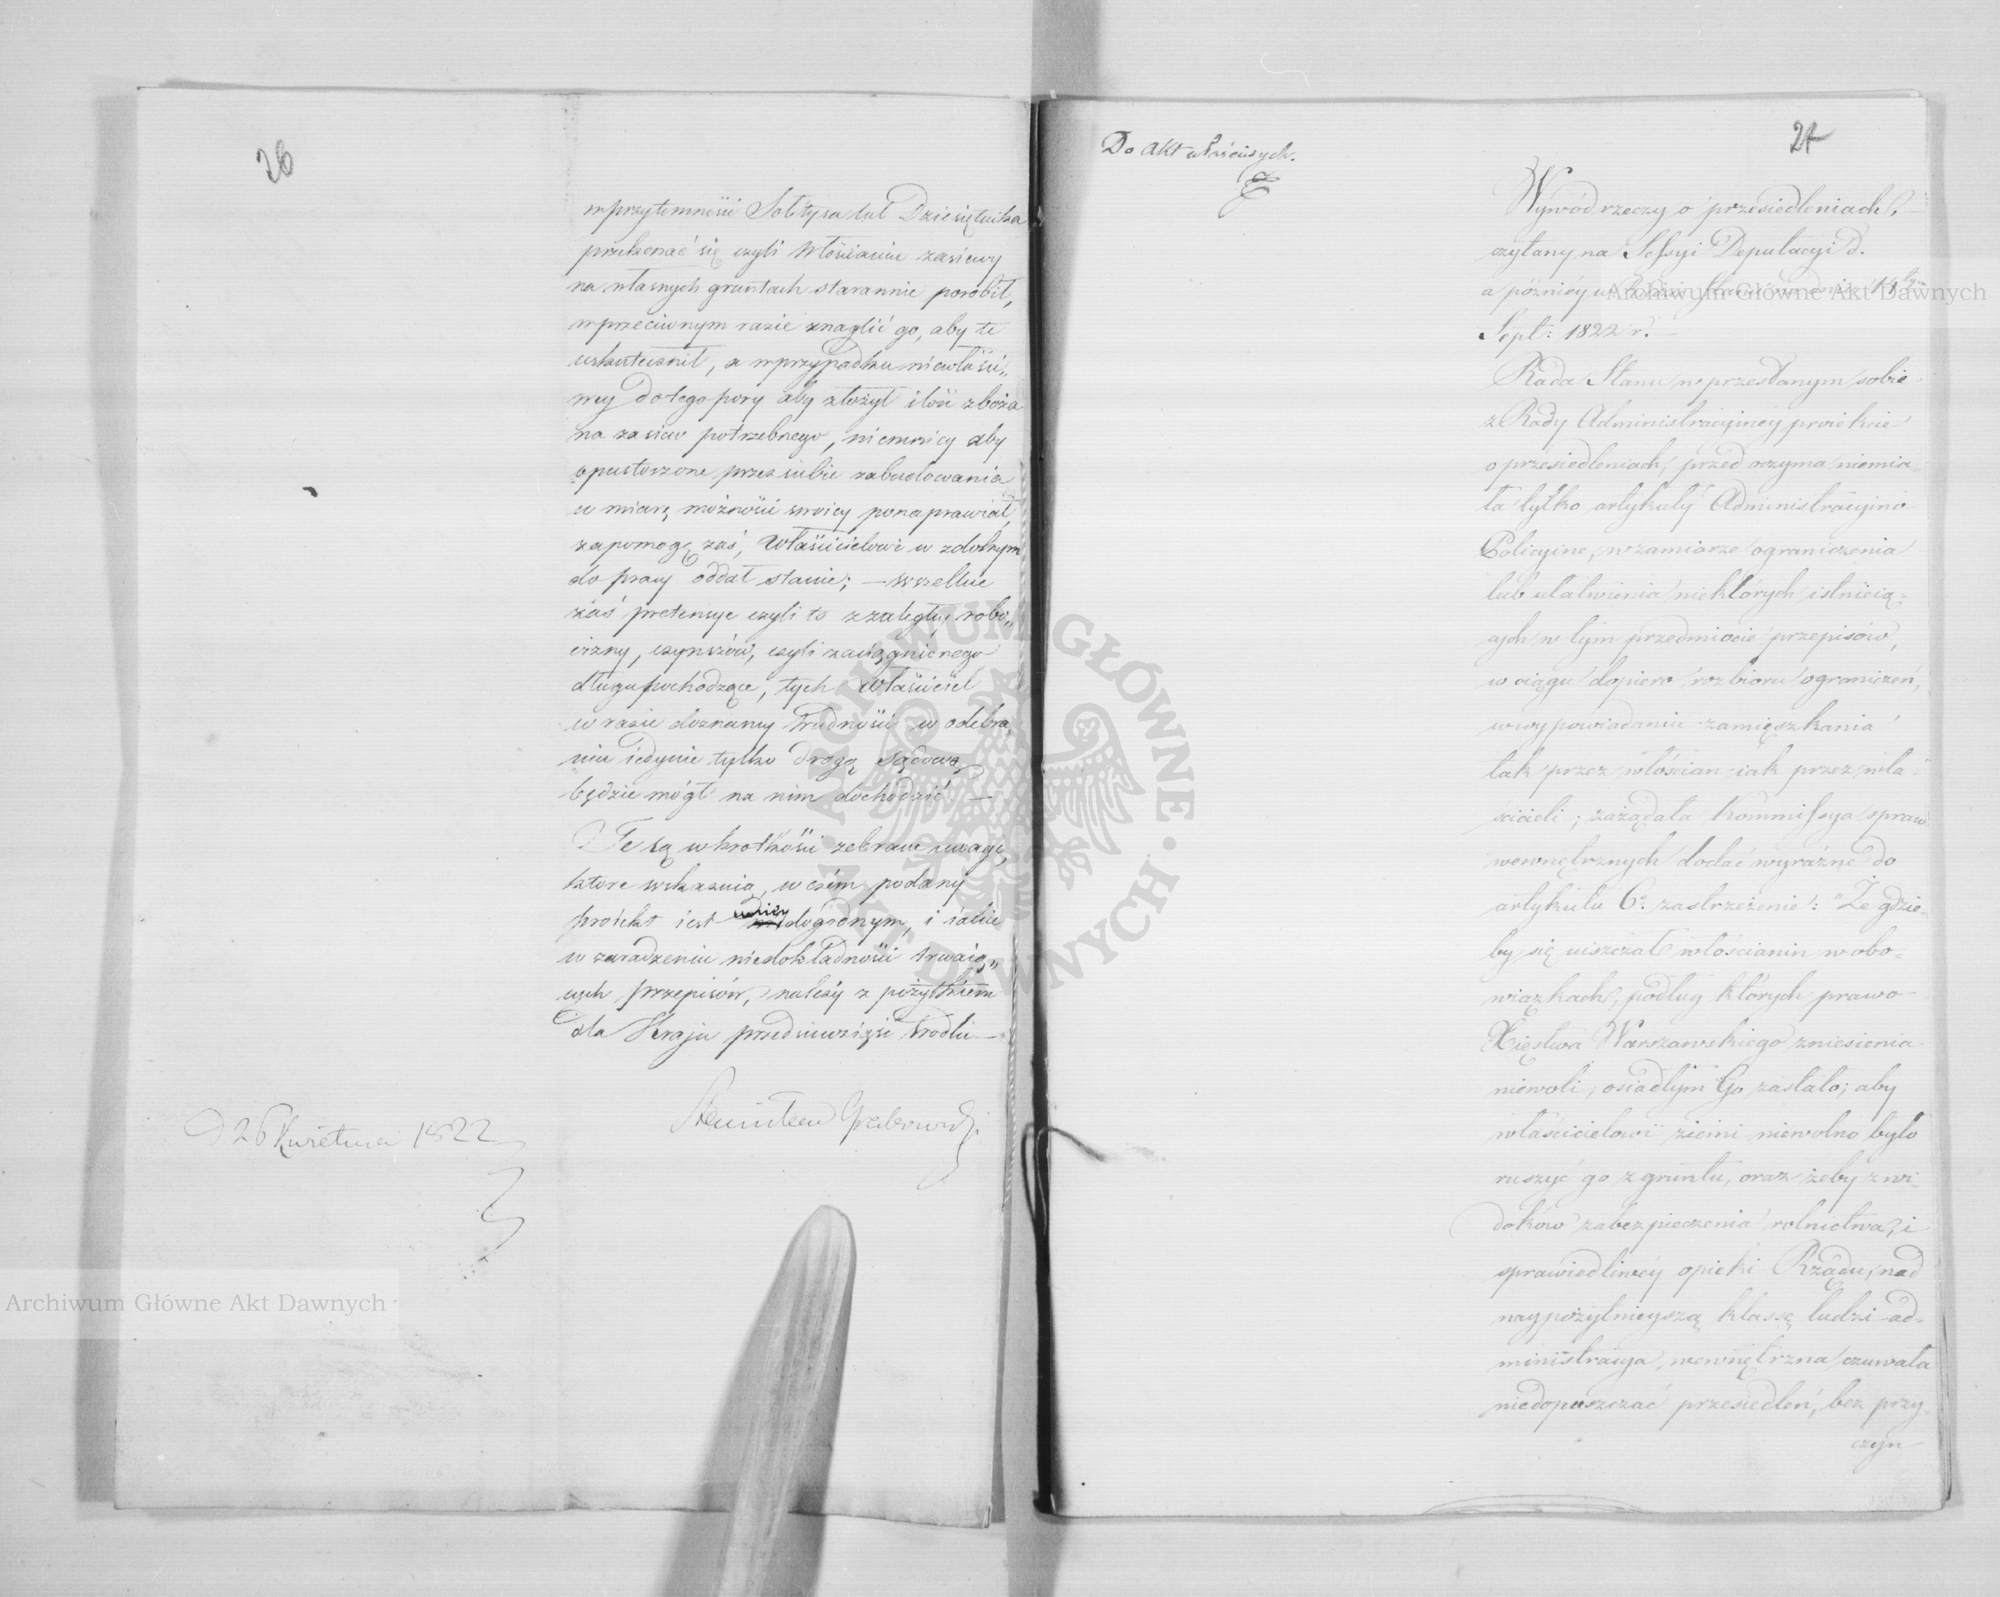 26
w przytomności Sołtysa lub Dziesiętnika
przekonać się czyli Włościanin zasiewy
na własnych gruntach starannie porobił,
w przeciwnym razie znaglić go, aby te
uskutecznił, a w przypadku niewłaści„
wey do tego pory aby złożył ilość zboża
na zasiew potrzebnego, niemniey aby
opustoszone przez siebie zabudowania
w miarę możności swoiey ponaprawiał,
zapomogę zaś, Właścicielowi w zdolnym
do pracy oddał stanie; — wszelkie
zaś pretensye czyli to z zaległey robo„
cizny, czynszów, czyli zaciągnionego
długu pochodzące, tych Właściciel
w razie doznaney trudności w odebra„
niu iedynie tylko drogą sądową
będzie mógł na nim dochodzić —
Te są w krotkości zebrane uwagi,
ktore wskazuią, w czém podany
proiekt iest dogodnym, i iakie
w zaradzeniu niedokładności trwaią„
cych przepisów, należy z pożytkiem
dla Kraju przedsiewziąść srodki —
D 26 Kwietnia 1822
Stanisław Grabowski
27
Do Akt właściwych.
Wywód rzeczy o przesiedleniach,
czytany na Sessyi Deputacyi d.
a pózniey
Sept: 1822 r.
Rada Stanu w przesłanym sobie
z Rady Administracyiney proiekcie
o przesiedleniach, przed oczyma niemia-
ła tylko artykuły Administracyino
Policyine, w zamiarze ograniczenia
lub ułatwienia niektórych istnieią-
cych w tym przedmiocie przepisów,
w ciągu dopiero rozbioru ograniczeń,
w wypowiadaniu zamięszkania
tak przez włościan iak przez wła-
ścicieli; zażądała Kommissya spraw
wewnętrznych dodać wyraźne do
artykułu 6º zastrzeżenie: "Że gdzie-
by się uiszczał włościanin w obo-
wiązkach, podług których prawo
Xięstwa Warszawskiego zniesienia
niewoli, osiadłym Go zastało; aby
właścicielowi ziemi niewolno było
ruszyć go z gruntu, oraz żeby z wi-
doków zabezpieczenia rolnictwa, i
sprawiedliwéy opieki Rządu, nad
naypożytnieyszą klassą ludzi ad-
ministracya wewnętrzna czuwała
niedopuszczać przesiedleń, bez przy-
czyn
Archiwum Główne Akt Dawnych
Archiwum Główne Akt Dawnych
ARCHIWUM GŁÓWNE AKT DAWNYCH